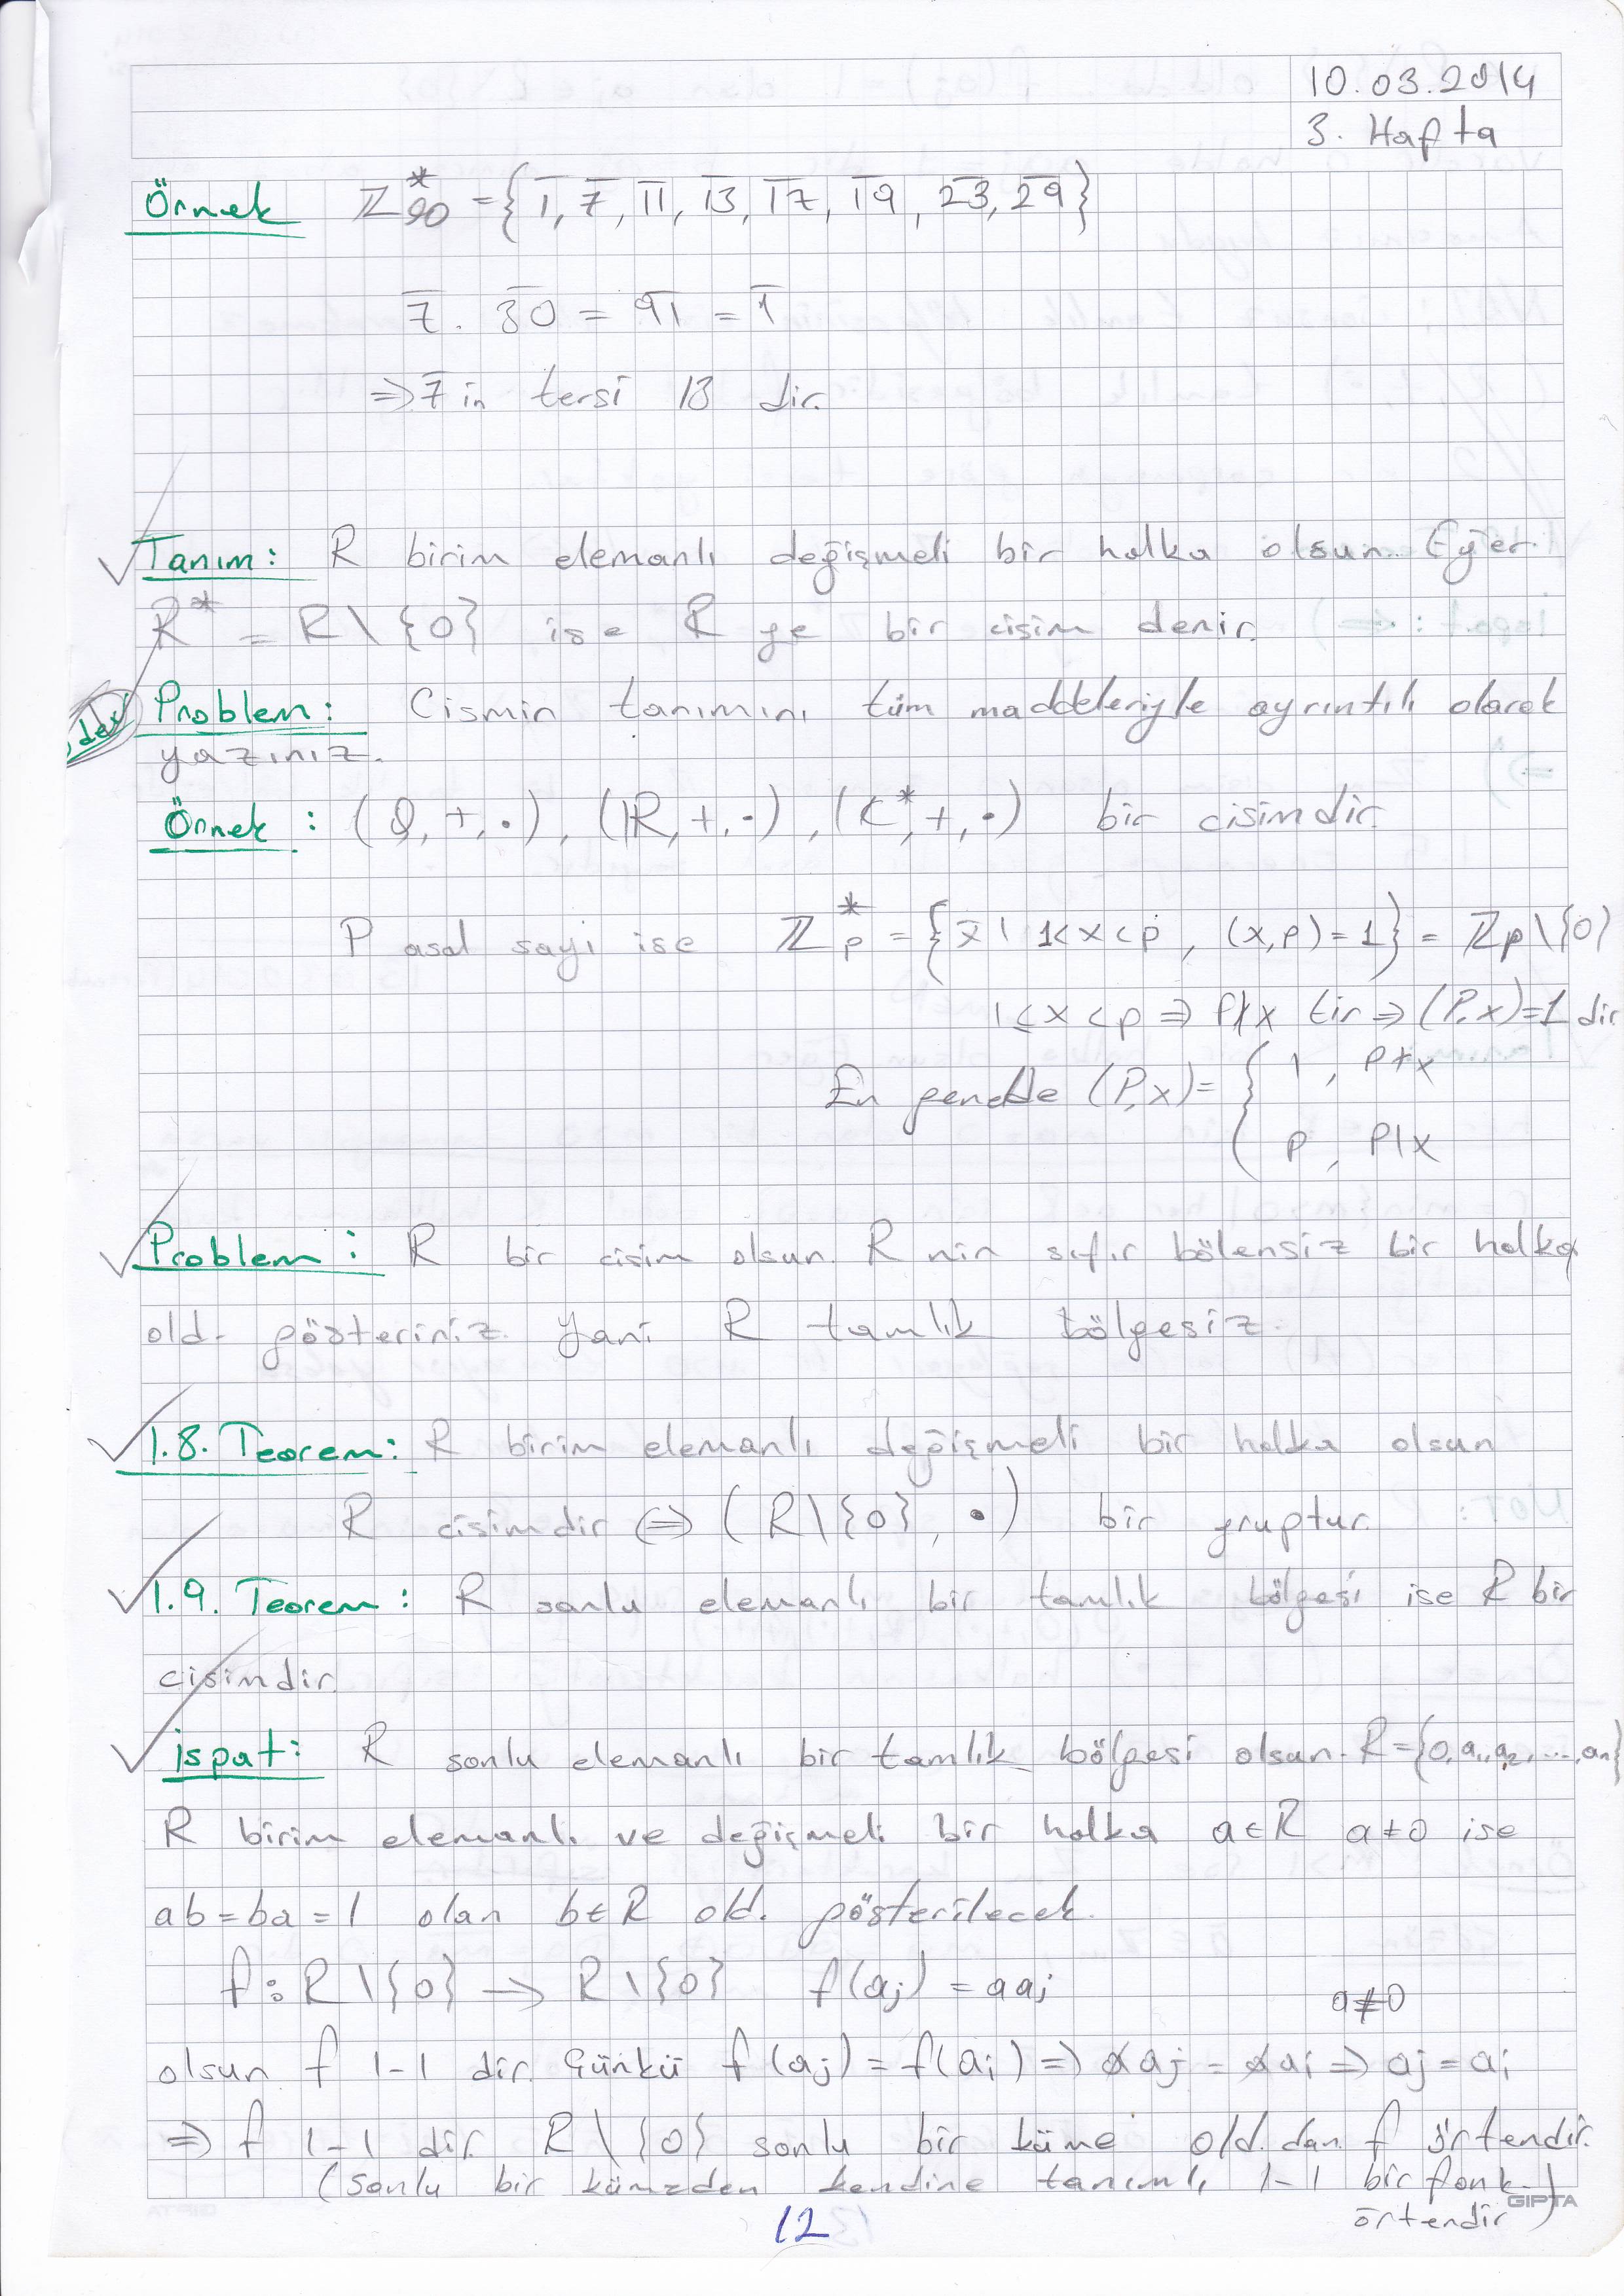 10.03.2014
3. Hafta
Örnek Z*₉₀ = {1̅, 7̅, 1̅1̅, 1̅3̅, 1̅7̅, 1̅9̅, 2̅3̅, 2̅9̅}
7̅ . 3̅0̅ = 9̅1̅ = 1̅
⇒ 7̅ in tersi 13 dir.
Tanım: R birim elemanlı değişmeli bir halka olsun. Eğer
R* = R \ {0} ise R ye bir cisim denir.
Problem: Cismin tanımını tüm maddeleriyle ayrıntılı olarak
yazınız.
Örnek : (Q, +, •), (IR, +, •), (C*, +, •) bir cisimdir.
P asal sayı ise Z*ₚ = {x̅ | 1<x<p , (x,p)=1} = Zp\{0}
1 ≤ x < p ⇒ P∤x tir ⇒ (P,x)=1 dir
En genelde (P,x) = { 1 , P∤x
p , P|x
Problem : R bir cisim olsun. R nin sıfır bölensiz bir halka
old. gösteriniz. Yani R tamlık bölgesiz.
1.8. Teorem: R birim elemanlı değişmeli bir halka olsun
R cisimdir ⇔ (R\{0}, •) bir gruptur.
1.9. Teorem : R sonlu elemanlı bir tamlık bölgesi ise R bir
cisimdir.
ispat: R sonlu elemanlı bir tamlık bölgesi olsun. R={0,a₁,a₂,...,aₙ}
R birim elemanlı ve değişmeli bir halka a∈R a≠0 ise
ab = ba = 1 olan b∈R old. gösterilecek.
f : R\{0} → R\{0} f(aⱼ) = aaⱼ
a≠0
olsun f 1-1 dir. Çünkü f(aⱼ) = f(aᵢ) ⇒ aaⱼ = aaᵢ ⇒ aⱼ = aᵢ
⇒ f 1-1 dir. R\{0} sonlu bir küme old.dan f örtendir.
(Sonlu bir kümeden kendine tanımlı 1-1 bir fonk.
örtendir)
GIPTA
12